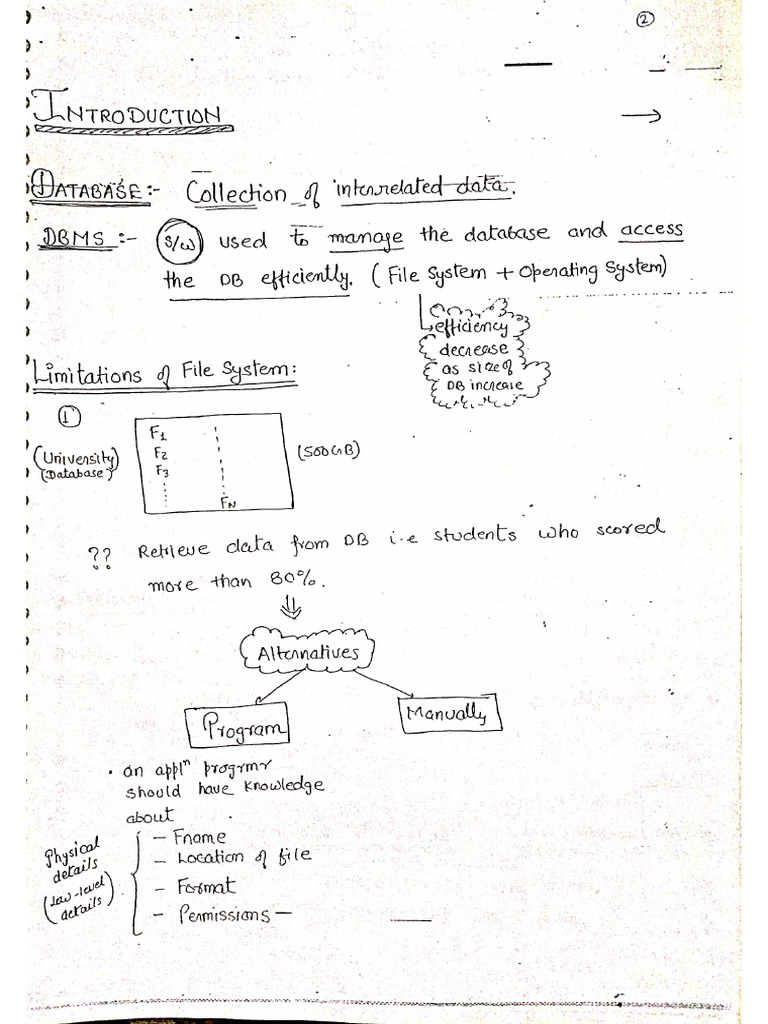 2
INTRODUCTION
DATABASE:- Collection of interrelated data.
DBMS :- S/W used to manage the database and access
the DB efficiently. (File System + Operating System)
efficiency
decrease
as size of
DB increase
Limitations of File System:
1
(University
Database)
F1
F2
F3
FN
(500GB)
?? Retrieve data from DB i.e students who scored
more than 80%.
Alternatives
Program
Manually
• an applⁿ progrmr
should have knowledge
about
Physical
details
(low-level
details)
- Fname
- Location of file
- Format
- Permissions -